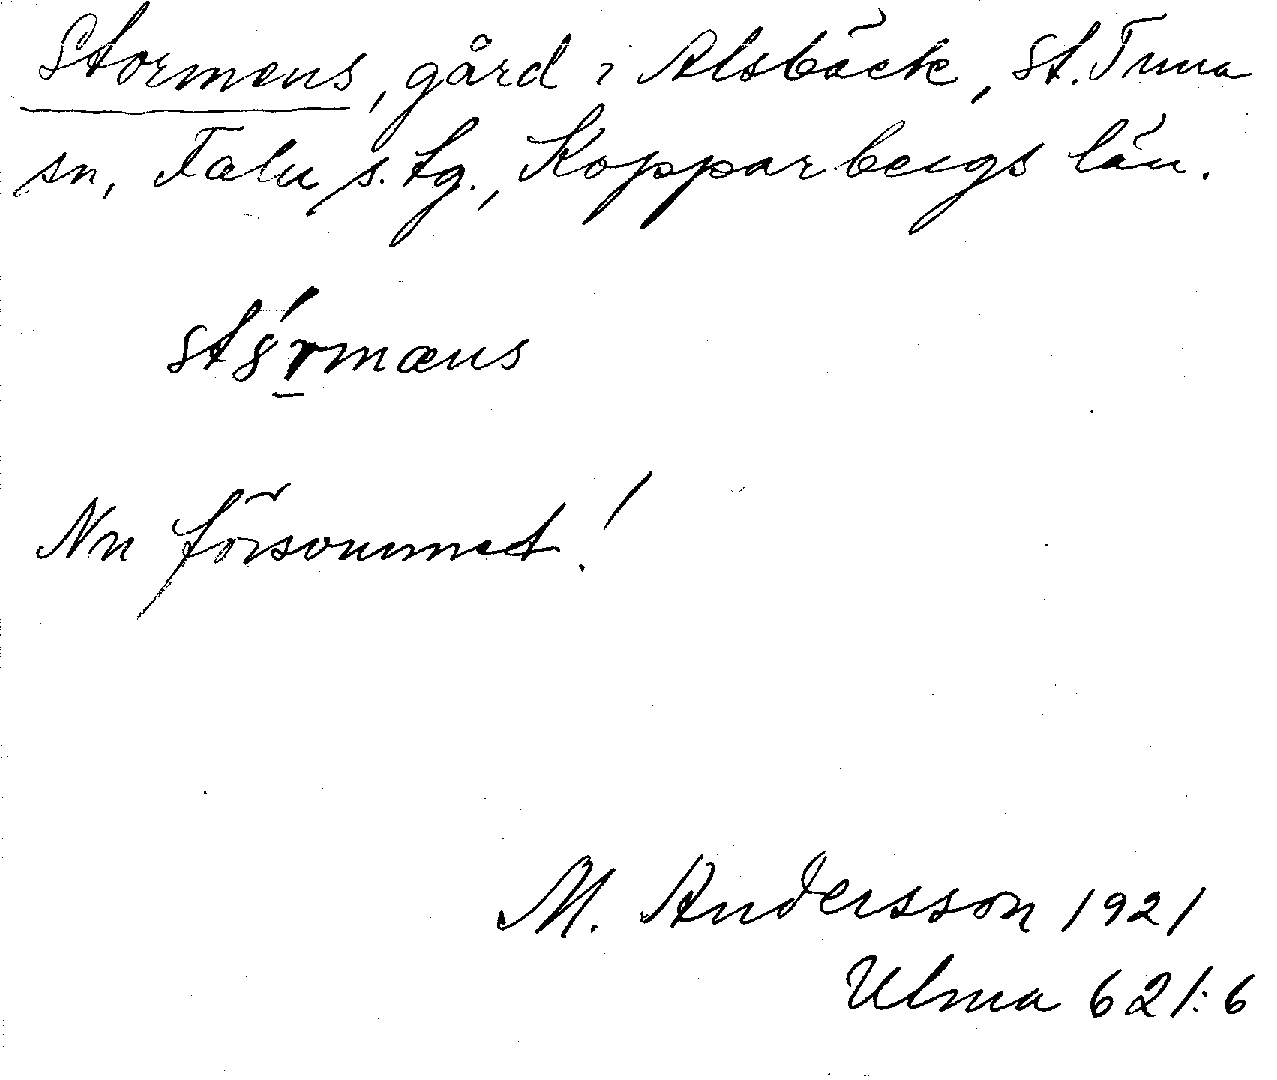 Stormens, gård i Alsbäck, St. Tuna
sn, Falu s. tg., Kopparbergs län.
Nu försvunnet!
M. Andersson 1921
Ulma 621:6